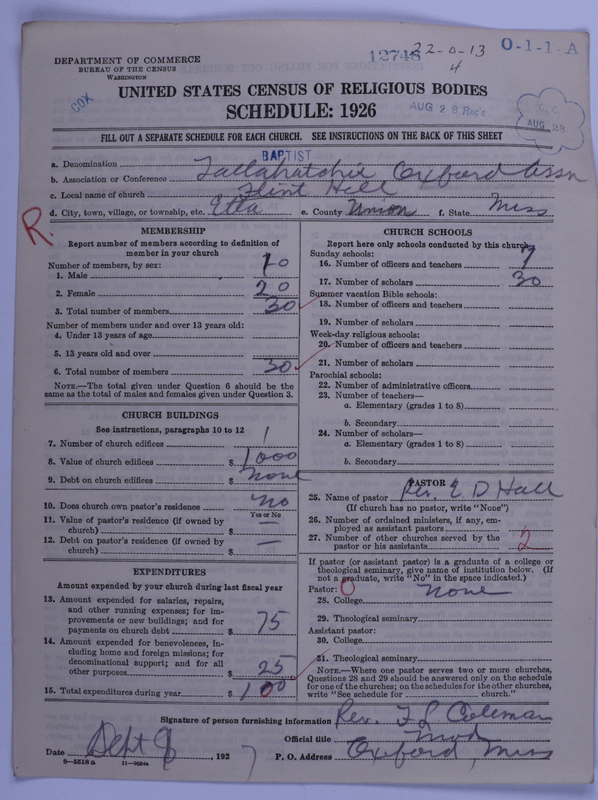 DEPARTMENT OF COMMERCE
BUREAU OF THE CENSUS
WASHINGTON
12746 22-0-13 O-1-1-A
4
COX
UNITED STATES CENSUS OF RELIGIOUS BODIES
AUG 28 Rec'd
SCHEDULE: 1926
AUG 28
FILL OUT A SEPARATE SCHEDULE FOR EACH CHURCH. SEE INSTRUCTIONS ON THE BACK OF THIS SHEET
a. Denomination BAPTIST
b. Association or Conference Tallahatchie Oxford Assn
c. Local name of church Flint Hill
d. City, town, village, or township, etc. Etta e. County Union f. State Miss
R.
MEMBERSHIP
Report number of members according to definition of
member in your church
Number of members, by sex:
1. Male 10
2. Female 20
3. Total number of members 30
Number of members under and over 13 years old:
4. Under 13 years of age
5. 13 years old and over
6. Total number of members 30
NOTE.—The total given under Question 6 should be the
same as the total of males and females given under Question 3.
CHURCH BUILDINGS
See instructions, paragraphs 10 to 12
7. Number of church edifices 1
8. Value of church edifices $ 1000
9. Debt on church edifices $ none
10. Does church own pastor's residence no
Yes or No
11. Value of pastor's residence (if owned by
church) $
12. Debt on pastor's residence (if owned by
church) $ —
EXPENDITURES
Amount expended by your church during last fiscal year
13. Amount expended for salaries, repairs,
and other running expenses; for im-
provements or new buildings; and for
payments on church debt $ 75
14. Amount expended for benevolences, in-
cluding home and foreign missions; for
denominational support; and for all
other purposes $ 25
15. Total expenditures during year $ 100
CHURCH SCHOOLS
Report here only schools conducted by this church
Sunday schools:
16. Number of officers and teachers 7
17. Number of scholars 30
Summer vacation Bible schools:
18. Number of officers and teachers
19. Number of scholars
Week-day religious schools:
20. Number of officers and teachers
21. Number of scholars
Parochial schools:
22. Number of administrative officers
23. Number of teachers—
a. Elementary (grades 1 to 8)
b. Secondary
24. Number of scholars—
a. Elementary (grades 1 to 8)
b. Secondary
PASTOR
25. Name of pastor Rev. E D Hall
(If church has no pastor, write "None")
26. Number of ordained ministers, if any, em-
ployed as assistant pastors
27. Number of other churches served by the
pastor or his assistants 2
If pastor (or assistant pastor) is a graduate of a college or
theological seminary, give name of institution below. (If
not a graduate, write "No" in the space indicated.)
Pastor: O
28. College none
29. Theological seminary
Assistant pastor:
30. College
31. Theological seminary
NOTE.—Where one pastor serves two or more churches,
Questions 28 and 29 should be answered only on the schedule
for one of the churches; on the schedules for the other churches,
write "See schedule for church."
Signature of person furnishing information Rev. T L Coleman
Official title Mod
Date Sept 9, 1927 P. O. Address Oxford, Miss
8-5518a 11-9054a